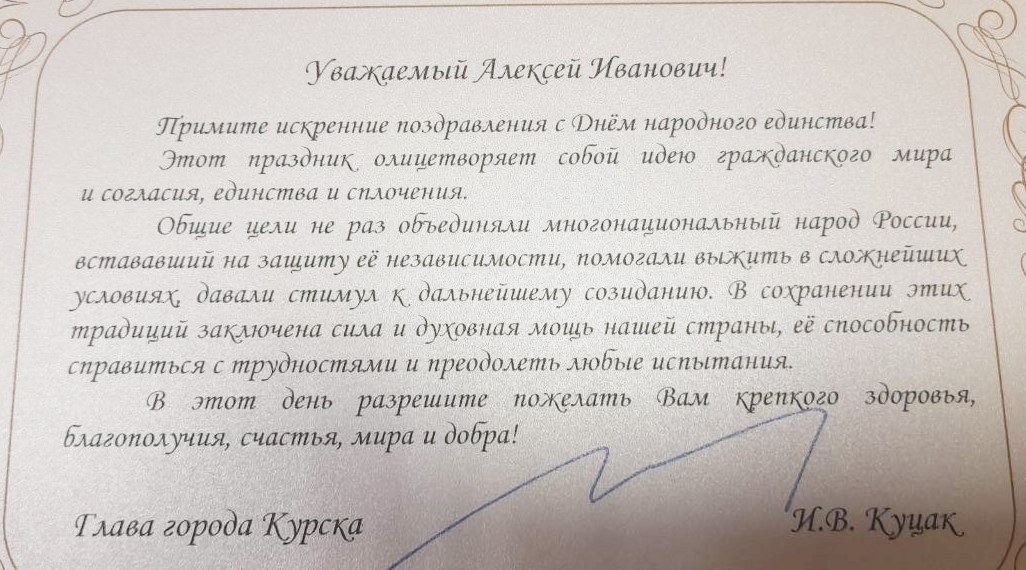 Уважаемый Алексей Иванович!
Примите искренние поздравления с Днём народного единства!
Этот праздник олицетворяет собой идею гражданского мира
и согласия, единства и сплочения.
Общие цели не раз объединяли многонациональный народ России,
встававший на защиту её независимости, помогали выжить в сложнейших
условиях, давали стимул к дальнейшему созиданию. В сохранении этих
традиций заключена сила и духовная мощь нашей страны, её способность
справиться с трудностями и преодолеть любые испытания.
В этот день разрешите пожелать Вам крепкого здоровья,
благополучия, счастья, мира и добра!
Глава города Курска И.В. Куцак